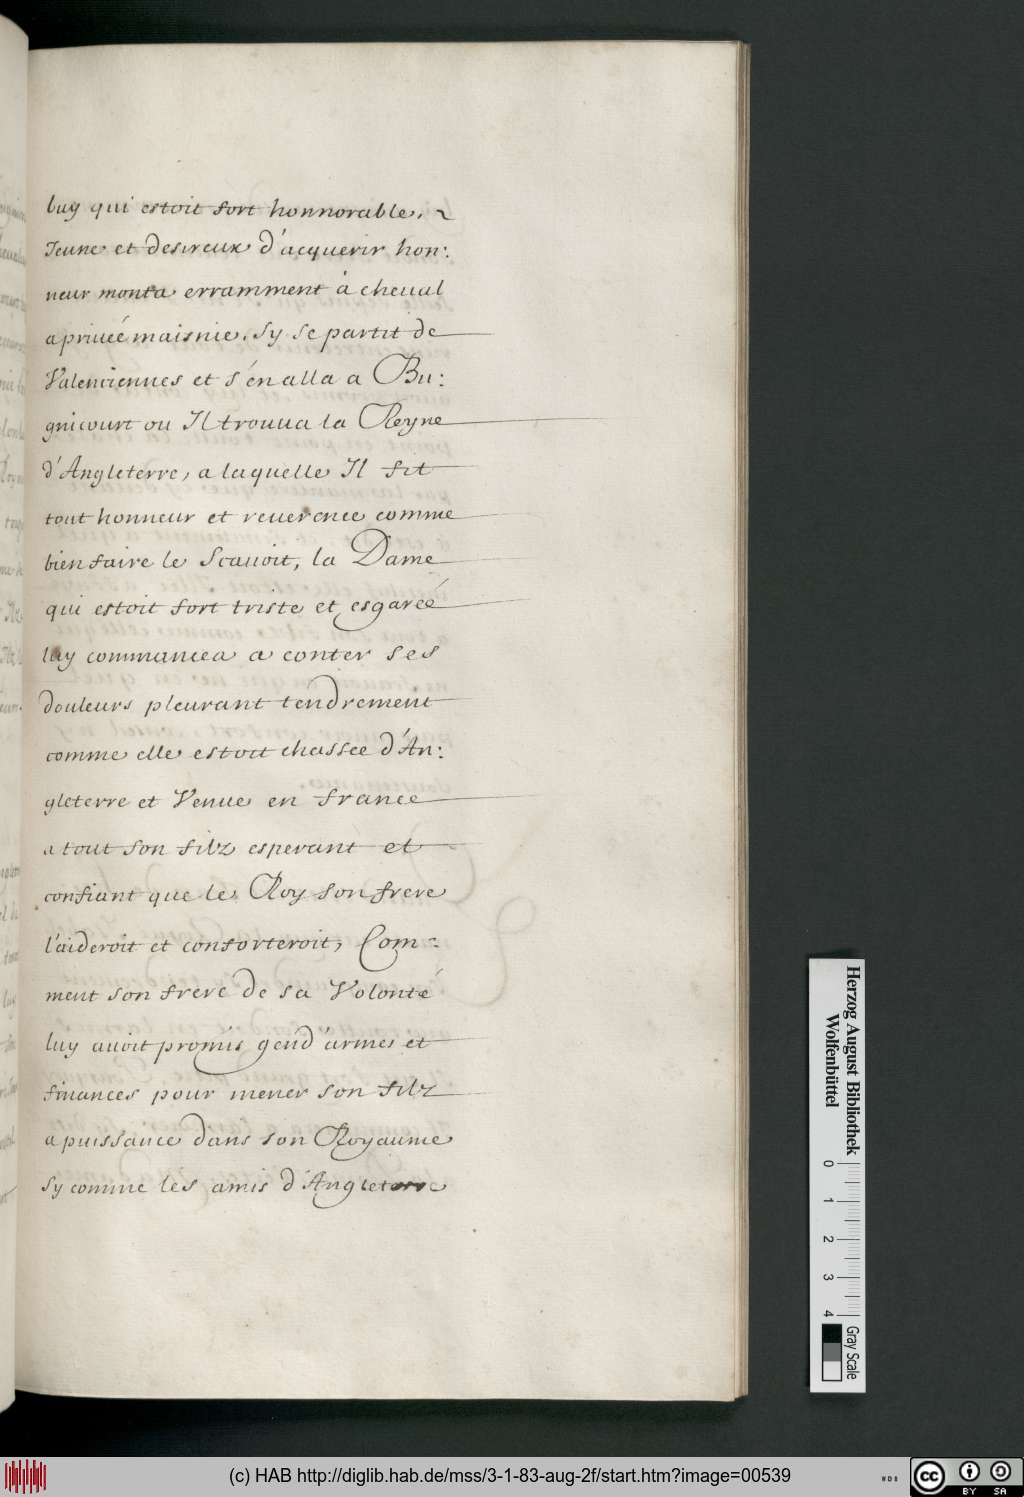 luy qui estoit fort honnorable, ~
Jeune et desireux d'acquerir hon:
neur monta erramment à cheual
a priueé maisnie. Sy se partit de
Valenciennes et s'en alla a Bu:
gnicourt ou Il trouua la Reyne
d'Angleterre, a laquelle Il fit
tout honneur et reuerence comme
bien faire le Scauoit, la Dame
qui estoit fort triste et esgareé
luy commancea a conter ses
douleurs pleurant tendrement
comme elle estoit chassee d'An:
gleterre et Venue en france
a tout son filz esperant et
confiant que le Roy son frere
l'aideroit et conforteroit, Com:
ment son frere de sa Volonté
luy auoit promis gend'armes et
finances pour mener son filz
a puissance dans son Royaume
Sy comme les amis d'Angleterre
Herzog August Bibliothek
Wolfenbüttel
0 1 2 3 4
Gray Scale
(c) HAB http://diglib.hab.de/mss/3-1-83-aug-2f/start.htm?image=00539
WDB
cc BY SA